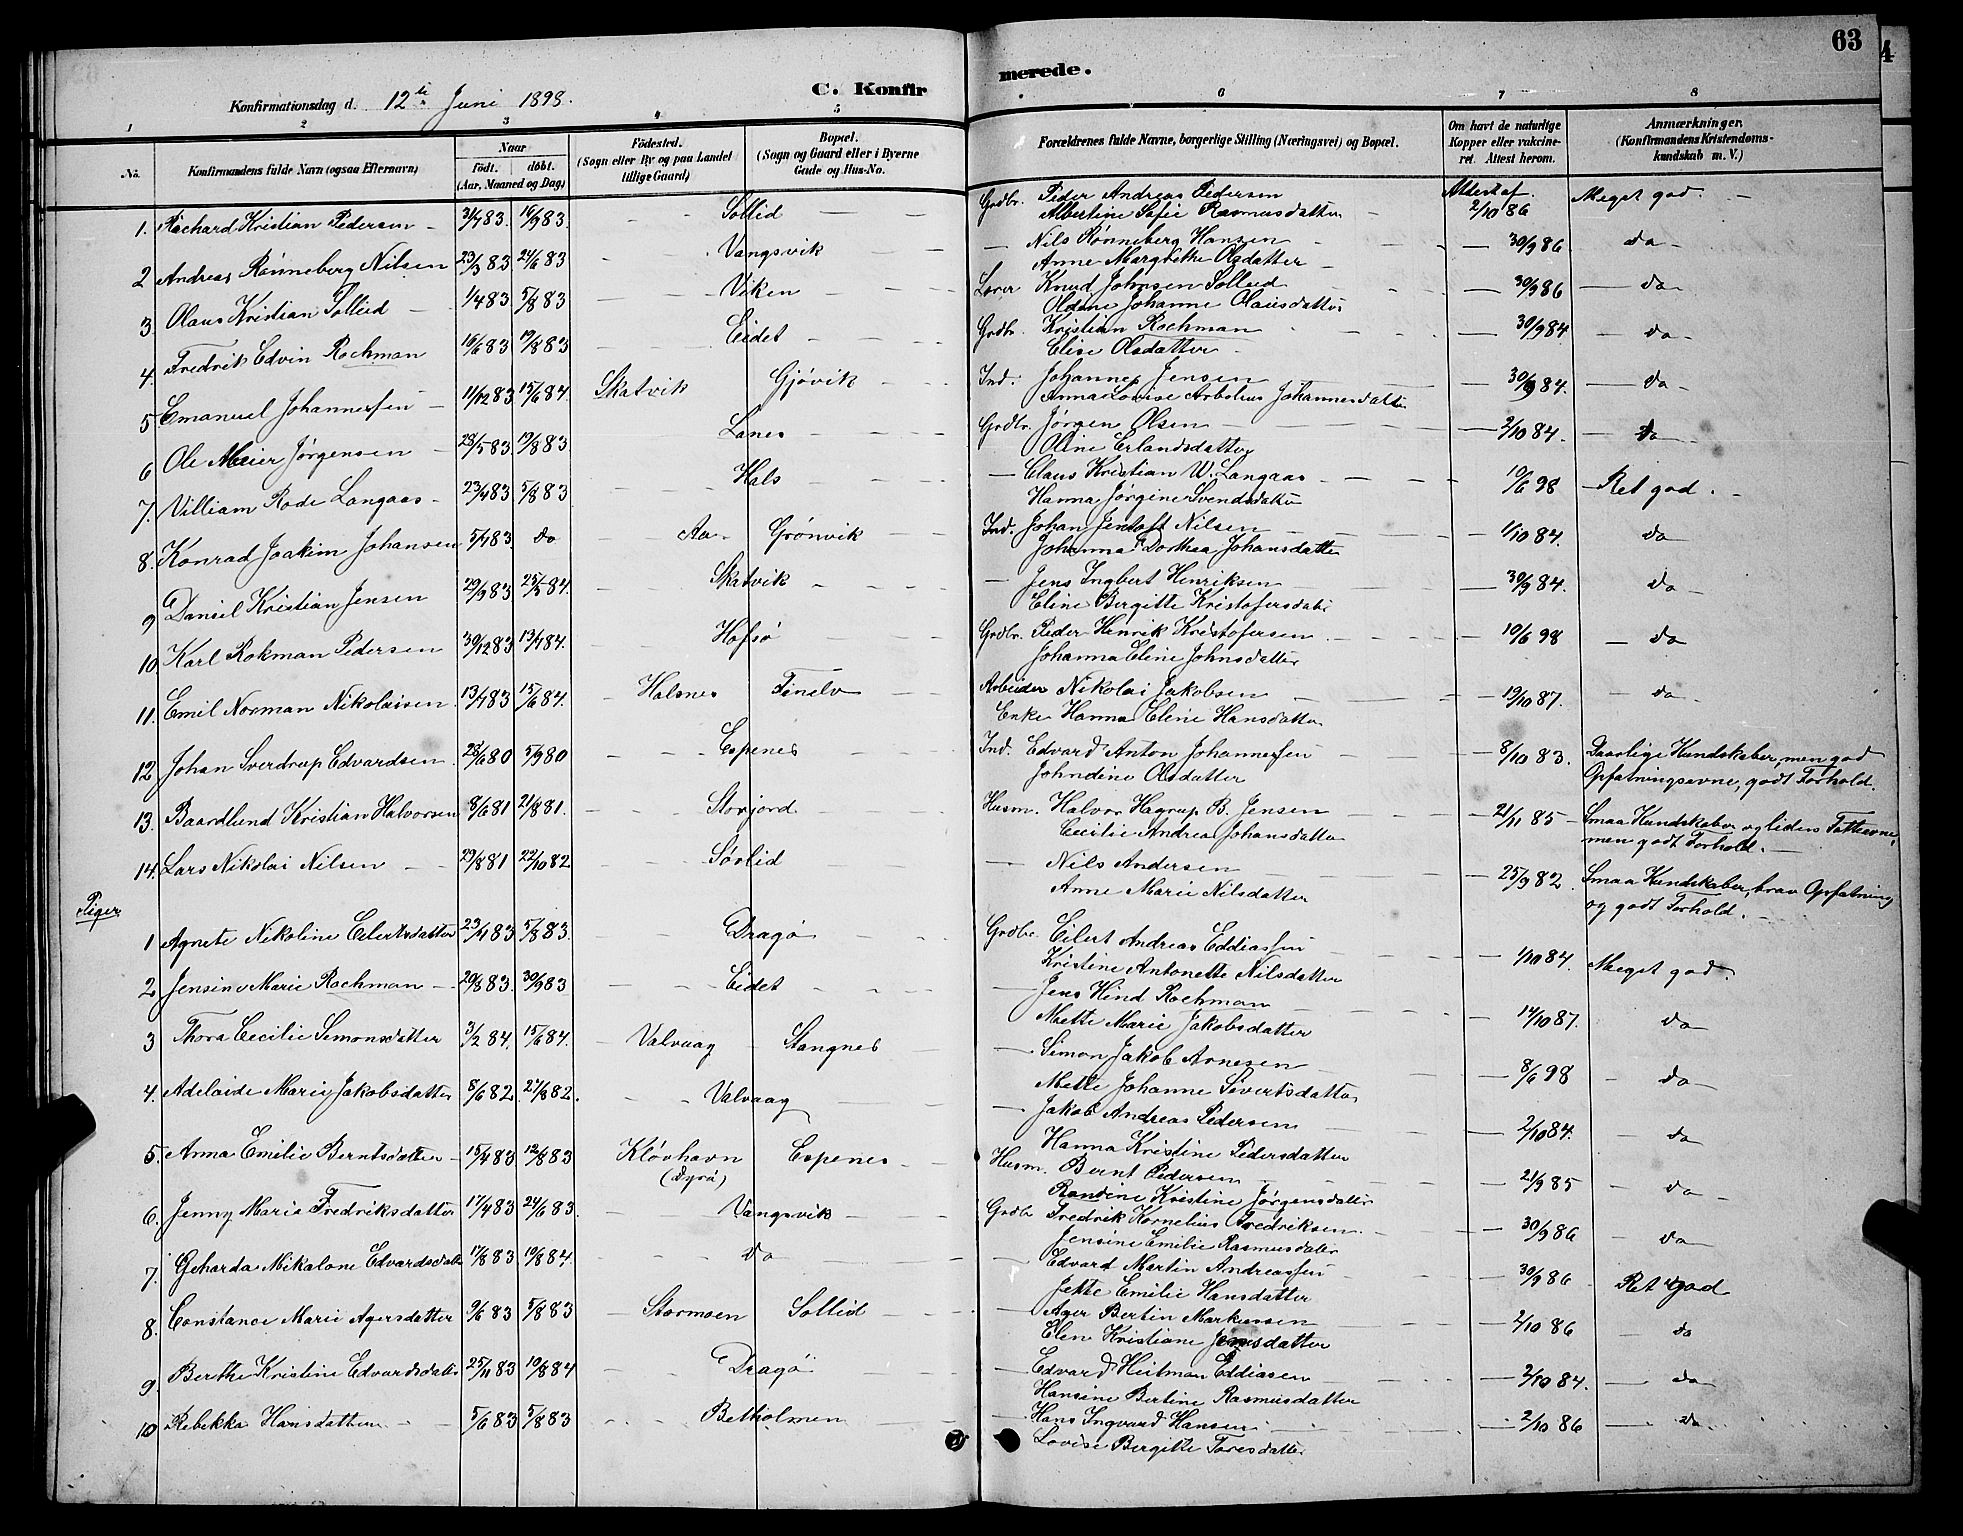 63
4
C. Konfirmerede.
Konfirmationsdag d. 12te Juni 1898.
1 2 3 4 5 6 7 8
No.
Konfirmandens fulde Navn (ogsaa Efternavn)
Naar
födt. döbt.
(Aar, Maaned og Dag)
Födested.
(Sogn eller By og paa Landet tillige Gaard)
Bopæl.
(Sogn og Gaard eller i Byerne Gade og Hus-No.
Forældrenes fulde Navne, borgerlige Stilling (Næringsvei) og Bopæl.
Om havt de naturlige Kopper eller vakcineret. Attest herom.
Anmærkninger.
(Konfirmandens Kristendomskundskab m. V.)
1. Richard Kristian Pedersen 31/7 83. 16/9 83. Sollid Grdbr. Peder Andreas Pedersen Attest af 2/10 86 Meget god.
Albertine Sofie Rasmusdatter
2 Andreas Rønneberg Nilsen 23/3 83 24/6 83 Vangsvik Nils Rønneberg Hansen 30/9 86 do
Anne Margrethe Olsdatter
3 Olaus Kristian Solleid 1/4 83 5/8 83 Viken Lærer Knud Johnsen Solleid 30/9 86 do
Oldine Johanne Olausdatter
4. Fredrik Edvin Rochman 16/6 83 19/8 83 Eidet Grdbr. Kristian Rochman 30/9 84 do
Elise Olsdatter
5. Emanuel Johannessen 11/12 83 15/6 84. Skatvik Gjøvik Ind. Johannes Jensen 30/9 84. do
Anna Lovise Arbolius Johannesdatter
6 Ole Meier Jørgensen 28/5 83 19/8 83 Lanes Grdbr. Jørgen Olsen 2/10 84. do
Oline Erlandsdatter
7. Villiam Rode Langaas 23/4 83 5/8 83 Hals Claus Kristian W. Langaas 10/6 98 Ret god.
Hanna Jørgine Svendsdatter
8. Konrad Joakim Johansen 5/4 83. do Aa Grønvik Ind. Johan Jentoft Nilsen 1/10 84. do
Johanna Dorthea Johansdatter
9 Daniel Kristian Jensen 29/9 83 25/5 84. Skatvik Jens Ingbert Henriksen 30/9 84. do
Eline Bergitte Kristofersdatr
10. Karl Rokman Pedersen 30/12 83 13/4 84. Hofsø Grdbr. Peder Henrik Kristofersen 10/6 98 do
Johanna Eline Johnsdatter
11. Emil Norman Nikolaisen 13/4 83 15/6 84. Halsnes Finelv Arbeider Nikolai Jakobsen 19/10 87. do
Enke Hanna Elene Hansdatter
12 Johan Sverdrup Edvardsen 28/6 80 5/9 80 Espenes Ind. Edvard Anton Johannessen 8/10 83. Daarlige Kundskaber, men god
Johndine Olsdatter Opfatningsevne, godt Forhold.
13. Baardlund Kristian Halvorsen 8/6 81 21/8 81. Storjord Husm. Halvor Hagrup B. Jensen 21/11 85 Smaa Kundskaber og liden Fatteevne,
Cecilie Andrea Johansdatter men godt Forhold.
14. Lars Nikolai Nilsen 29/8 81 22/10 82 Sørlid Nils Andersen 25/9 82. Smaa Kundskaber, brav Opfatning
Anne Marie Nilsdatter og godt Forhold.
Piger
1 Agnete Nikoline Eilertsdatter 23/4 83 5/8 83. Dragø Grdbr. Eilert Andreas Eddiassen 1/10 84. Meget god.
Kristine Antonette Nilsdatter
2 Jensine Marie Rochman 20/8 83. 30/9 83 Eidet Jens Hind Rochman 14/10 87. do
Mette Marie Jakobsdatter
3 Thora Cecilie Simonsdatter 3/2 84. 15/6 84. Valvaag Stangnes Simon Jakob Arnesen 8/6 98 do
Mette Johanne Sivertsdatter
4. Adelaide Marie Jakobsdatter 8/6 82. 27/8 82. Valvaag Jakob Andreas Pedersen 2/10 84. do
Hanna Kristine Pedersdatter
5. Anna Emilie Berntsdatter 15/4 83 12/8 83 Kløvhavn (Dyrø) Espenes Husm. Bernt Pedersen 21/9 85 do
Randine Kristine Jørgensdatter
6. Jenny Marie Fredriksdatter 17/4 83 24/6 83. Vangsvik Grdbr Fredrik Kornelius Fredriksen 30/9 86 do
Jensine Emilie Rasmusdatr
7. Geharda Mikalone Edvardsdatr 17/8 83 10/8 84. do Edvard Martin Andreassen 30/9 86 Ret god
Jette Emilie Hansdatter
8. Constance Marie Agersdatter 9/6 83 5/8 83 Stormoen Sollid Ager Bertin Markussen 2/10 86 do
Elen Kristiane Jensdatter
9. Berthe Kristine Edvardsdatr 25/11 83 10/8 84 Dragø Edvard Heitman Eddiasen 2/10 84. do
Hansine Bertine Rasmusdatter
10 Rebekka Hansdatter 5/6 83 5/8 83 Betholmen Hans Ingvard Hansen 2/10 86 do
Lovise Bergitte Toresdatter